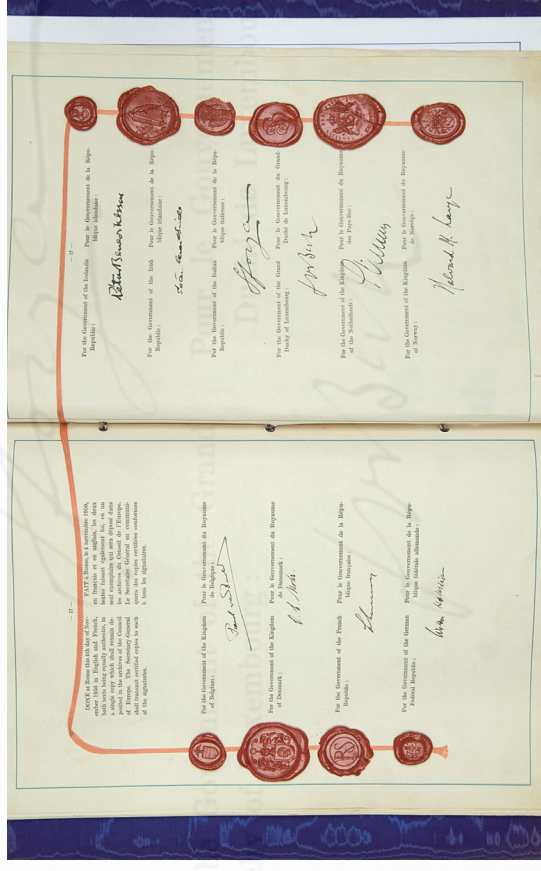 — 17 —
DONE at Rome this 4th day of Nov-
ember 1950 in English and French,
both texts being equally authentic, in
a single copy which shall remain de-
posited in the archives of the Council
of Europe. The Secretary-General
shall transmit certified copies to each
of the signatories.
FAIT à Rome, le 4 novembre 1950,
en français et en anglais, les deux
textes faisant également foi, en un
seul exemplaire qui sera déposé dans
les archives du Conseil de l'Europe.
Le Secrétaire Général en communi-
quera des copies certifiées conformes
à tous les signataires.
For the Government of the Kingdom
of Belgium :
Pour le Gouvernement du Royaume
de Belgique :
For the Government of the Kingdom
of Denmark :
Pour le Gouvernement du Royaume
de Danemark :
For the Government of the French
Republic :
Pour le Gouvernement de la Répu-
blique française :
For the Government of the German
Federal Republic :
Pour le Gouvernement de la Répu-
blique fédérale allemande :
For the Government of the Icelandic
Republic :
Pour le Gouvernement de la Répu-
blique islandaise :
For the Government of the Irish
Republic :
Pour le Gouvernement de la Répu-
blique irlandaise :
For the Government of the Italian
Republic :
Pour le Gouvernement de la Répu-
blique italienne :
Sforza
For the Government of the Grand
Duchy of Luxembourg :
Pour le Gouvernement du Grand-
Duché de Luxembourg :
Jos Bech
For the Government of the Kingdom
of the Netherlands :
Pour le Gouvernement du Royaume
des Pays-Bas :
For the Government of the Kingdom
of Norway :
Pour le Gouvernement du Royaume
de Norvège :
Halvard M. Lange